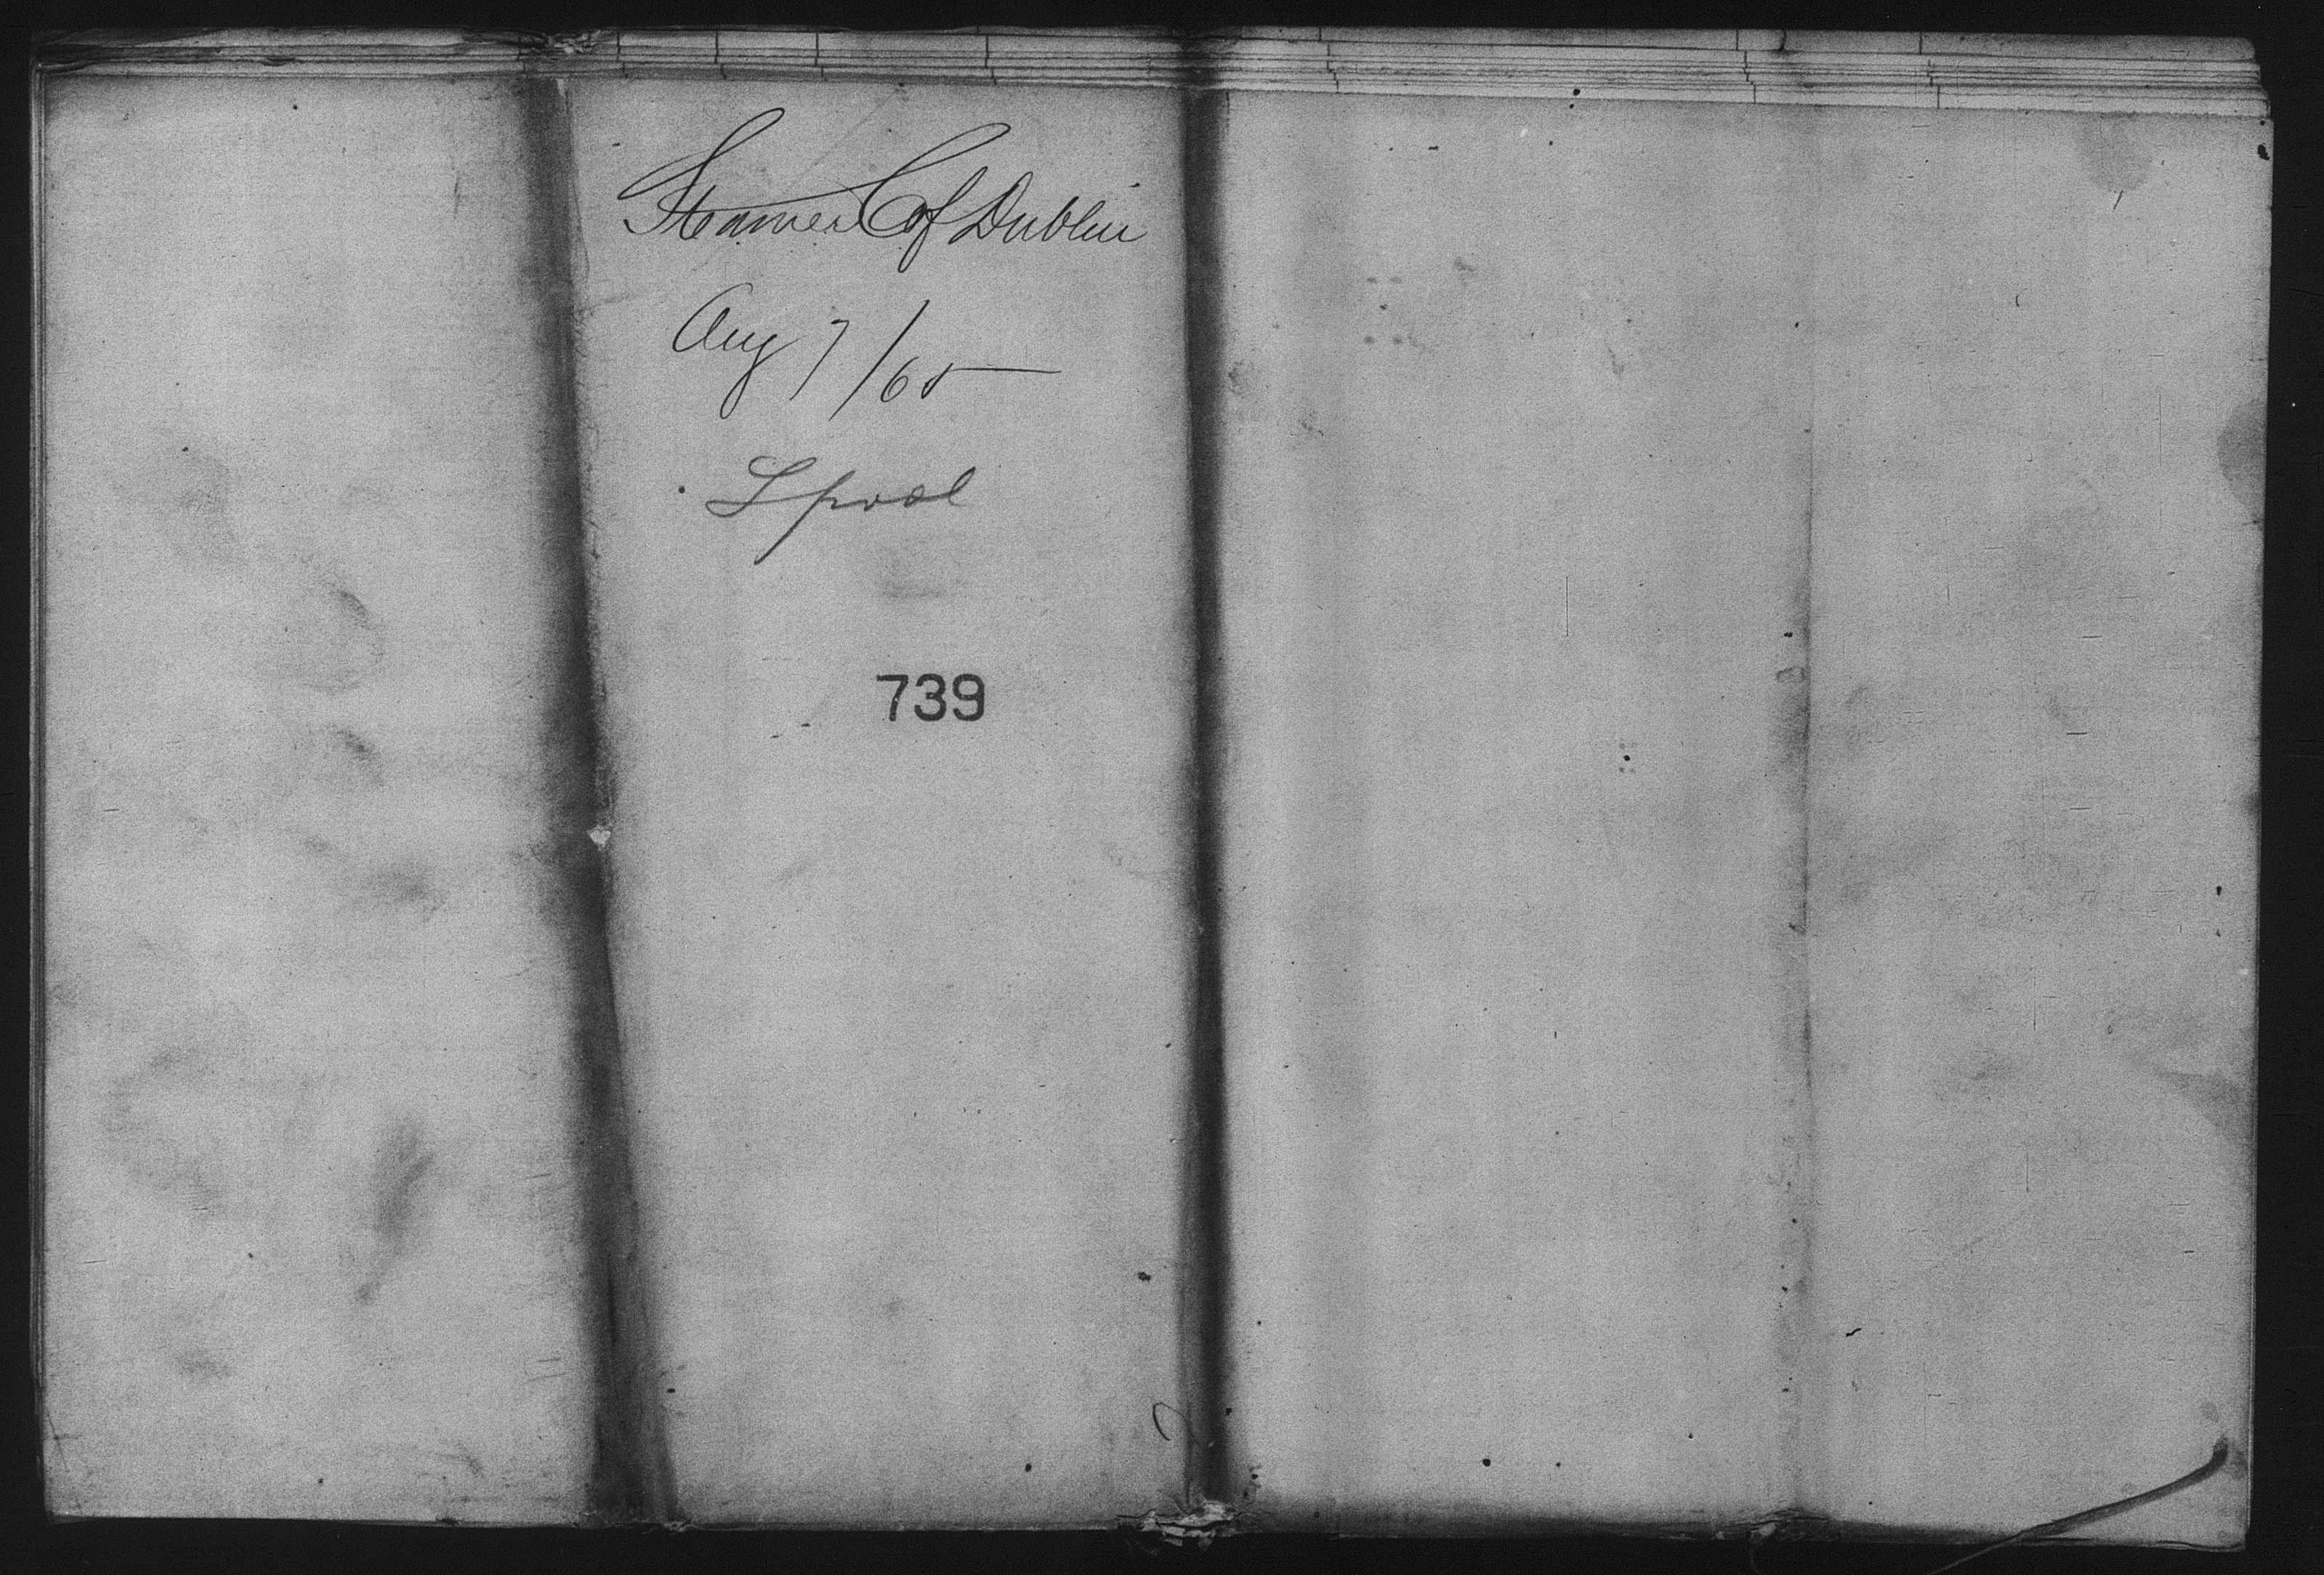 Steamer C of Dublin
Aug 7/65
Lpool
739